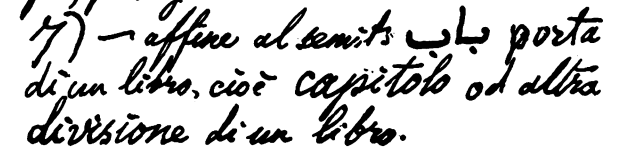 7) — affine al semits باب porta
di un libro, cioè capitolo od altra
divisione di un libro.